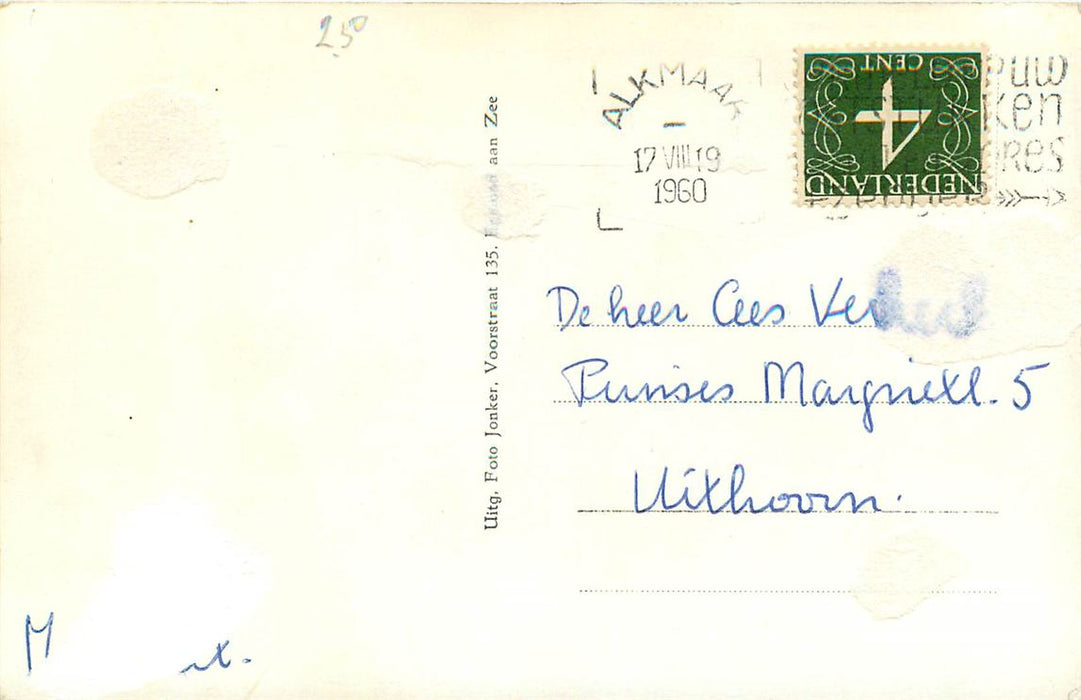 2.50
ALKMAAR
17 VIII 19
1960
CENT
4
NEDERLAND
Uitg. Foto Jonker, Voorstraat 135. aan Zee
De heer Cees
Prinses Margrietl. 5
Uithoorn.